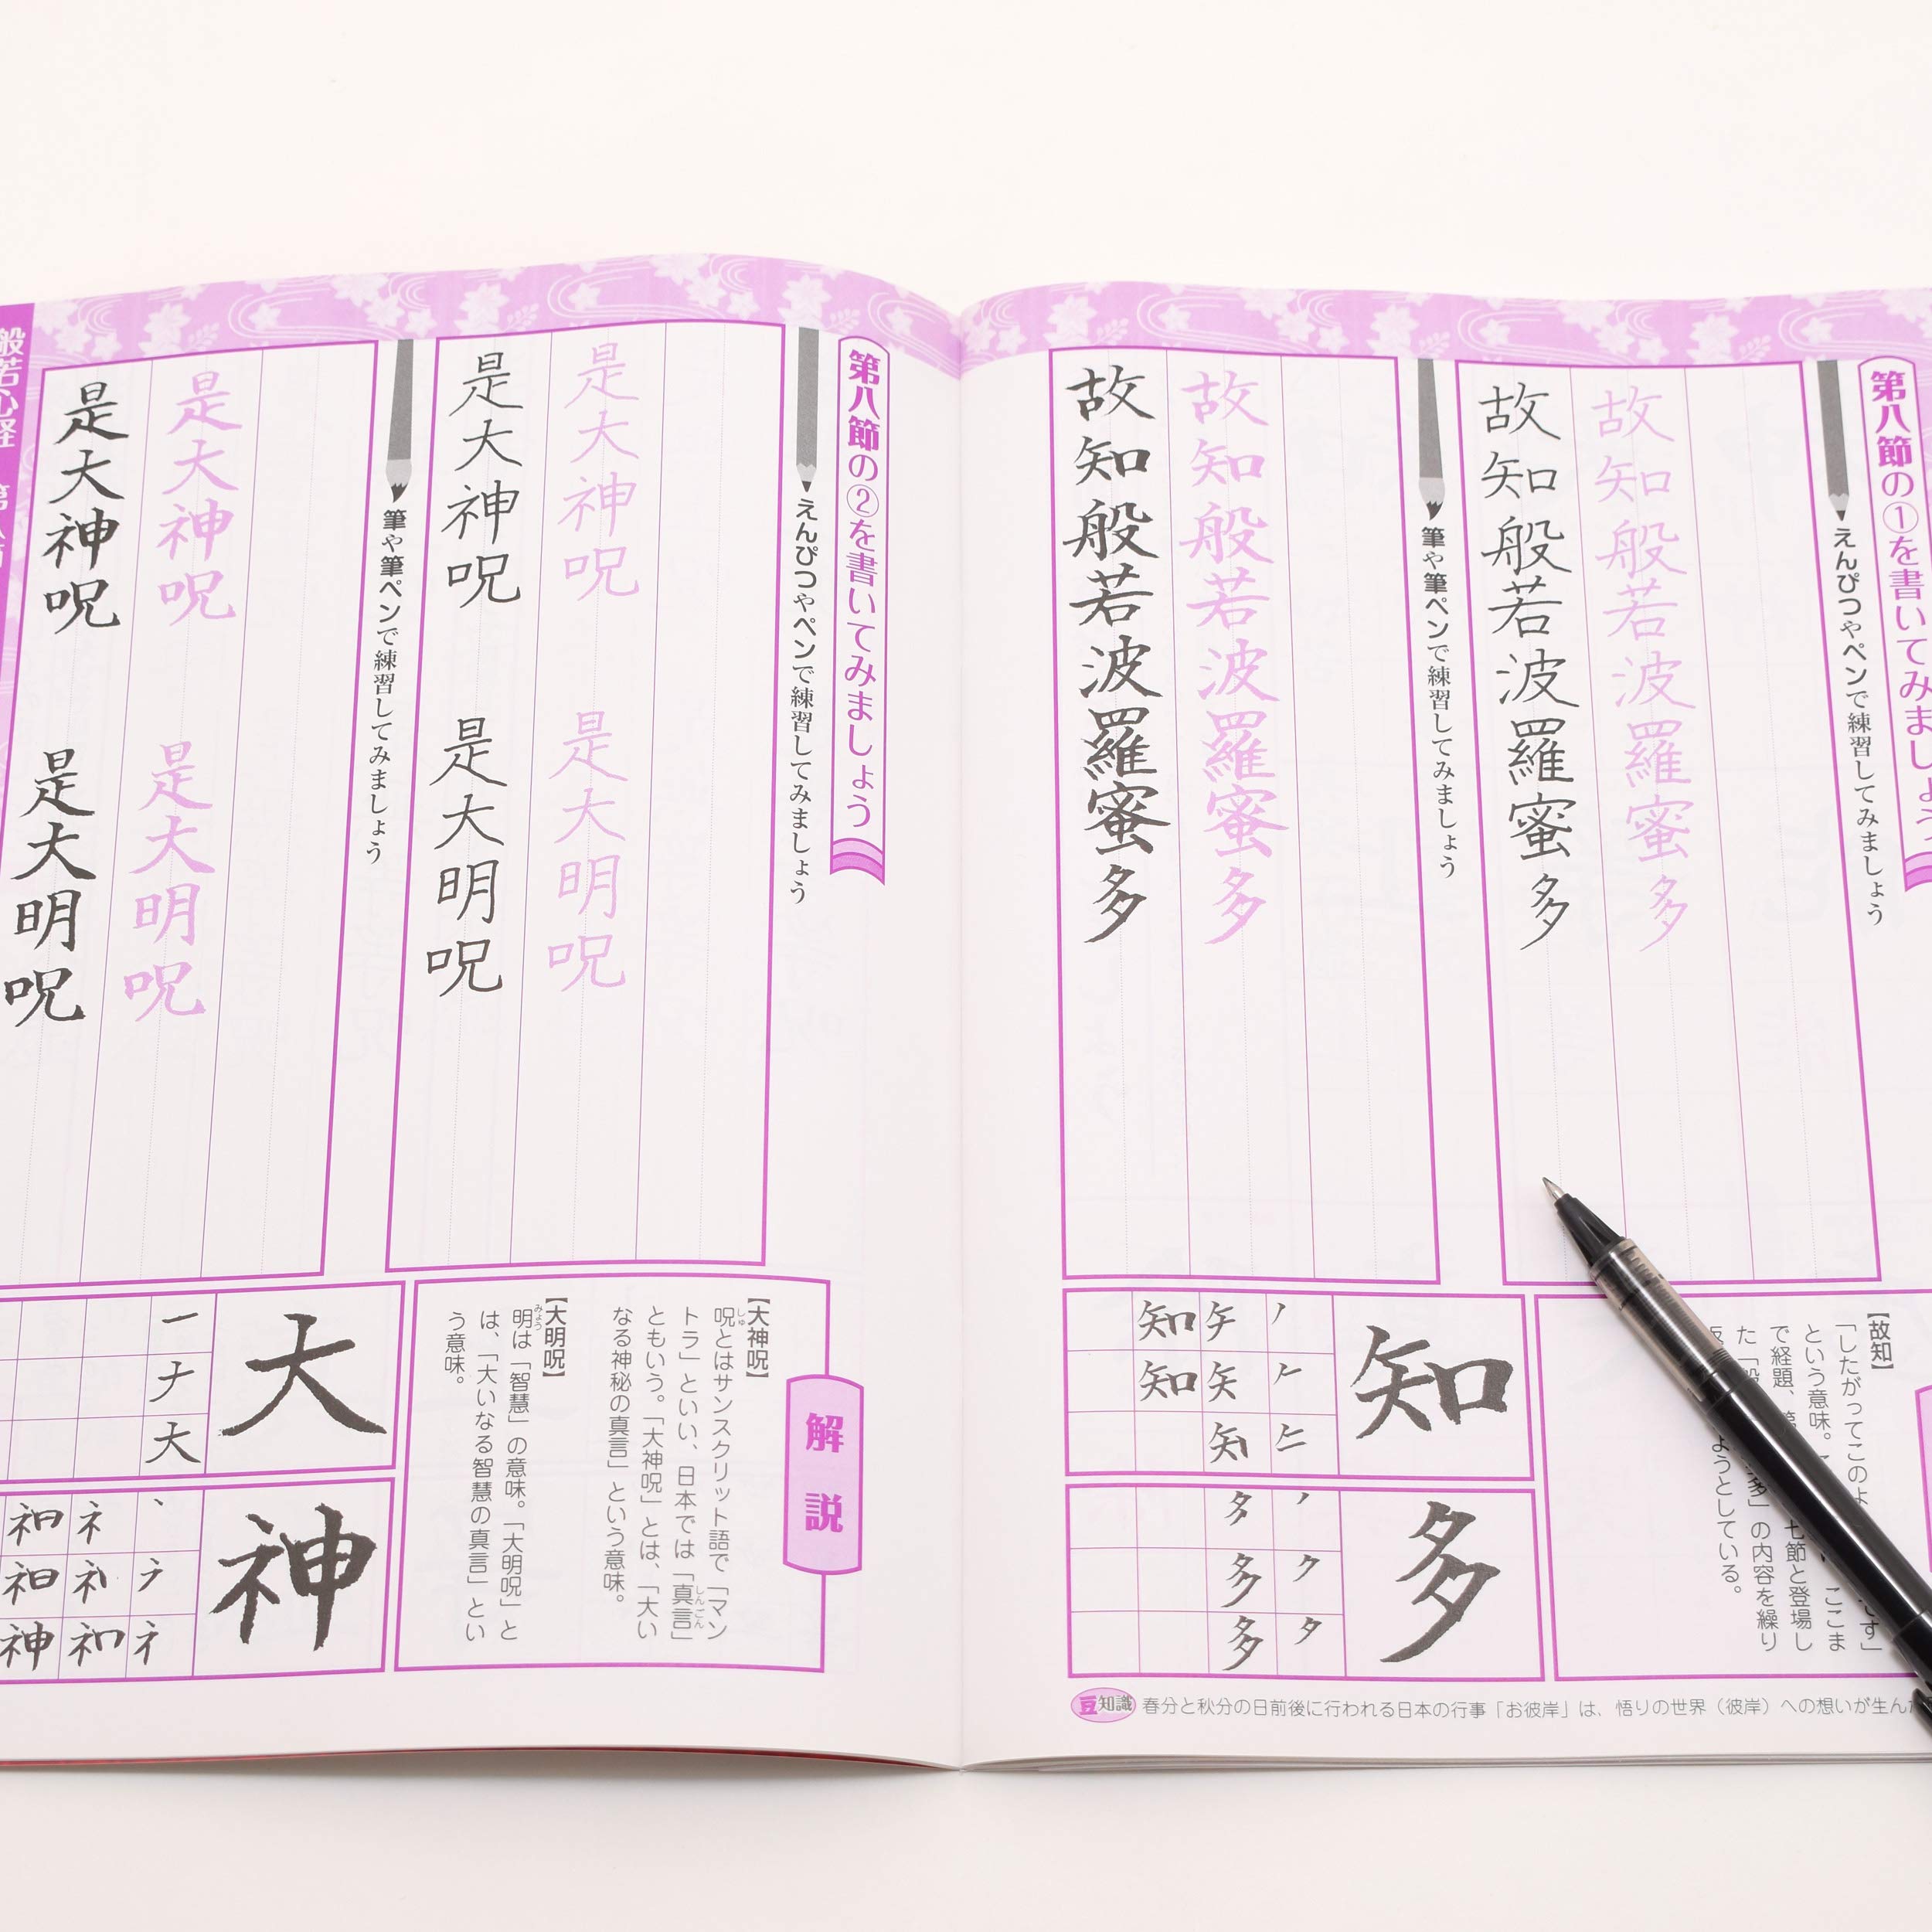 第八節の①を書いてみましょう
えんぴつやペンで練習してみましょう
故知般若波羅蜜多
故知般若波羅蜜多
筆や筆ペンで練習してみましょう
故知般若波羅蜜多
故知般若波羅蜜多
【故知】
「したがってこのよ
という意味。
ここま
で経題、
七節と登場し
た「般
多」の内容を繰り
ようとしている。
知
ノ
𠂉
矢
矢
知
知
多
ノ
ク
タ
多
多
豆知識
春分と秋分の日前後に行われる日本の行事「お彼岸」は、悟りの世界（彼岸）への想いが生ん
第八節の②を書いてみましょう
えんぴつやペンで練習してみましょう
是大神呪　是大明呪
是大神呪　是大明呪
筆や筆ペンで練習してみましょう
是大神呪　是大明呪
是大神呪　是大明呪
解説
【大神呪】
呪とはサンスクリット語で「マン
しゅ
トラ」といい、日本では「真言」
しんごん
ともいう。「大神呪」とは、「大い
なる神秘の真言」という意味。
【大明呪】
明は「智慧」の意味。「大明呪」と
みょう
は、「大いなる智慧の真言」とい
う意味。
大
一
ナ
大
神
丶
ラ
ネ
神
般若心経